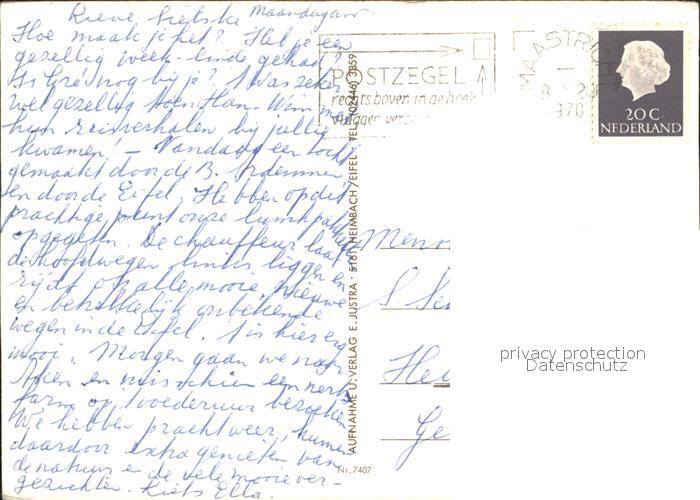 Maandagav.
Hoe maak je het? Heb je een
gezellig week-einde gehad?
Is Gré nog bij je? 't Was zeker
wel gezellig toen Han-Wim met
hun reisverhalen bij jullie
kwamen! – Vandaag een tocht
gemaakt door de B. Ardennen
en door de Eifel. Hebben op dit
prachtige punt onze lunchpakketten
opgegeten. De chauffeur laat
de hoofdwegen links liggen en
rijdt op alle mooie nieuwe
en behoorlijk onbekende
wegen in de Eifel. 't is hier erg
mooi. Morgen gaan we naar
Aken en misschien een
farm op voederuur bezoeken
We hebben prachtweer, kunnen
daardoor extra genieten van
de natuur en de vele mooie ver-
gezichten. Ella.
POSTZEGEL
rechts boven in de hoek
vlugger
MAASTRICHT
1970
20 C
NEDERLAND
AUFNAHME U. VERLAG E. JUSTRA · 5161 HEIMBACH/EIFEL · TEL. (02446) 3859
Nr. 7407
S.
Ge
privacy protection
Datenschutz